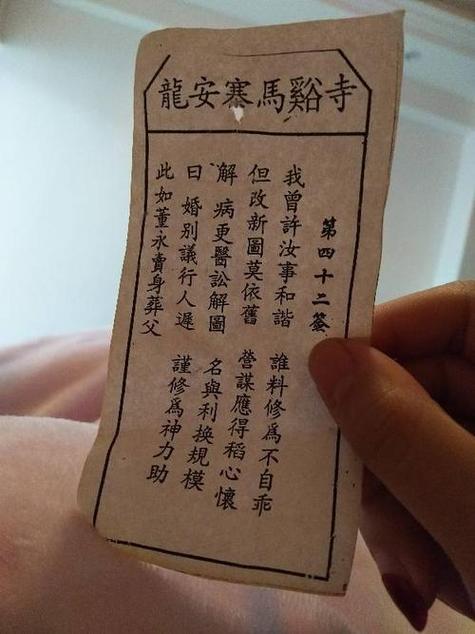 龍安寨馬谿寺
第四十二簽
我曾許汝事和諧 誰料修為不自乖
但改新圖莫依舊 營謀應得稻心懷
解 病更醫訟解圖 名與利換規模
曰 婚別議行人遲 謹修為神力助
此如董永賣身葬父